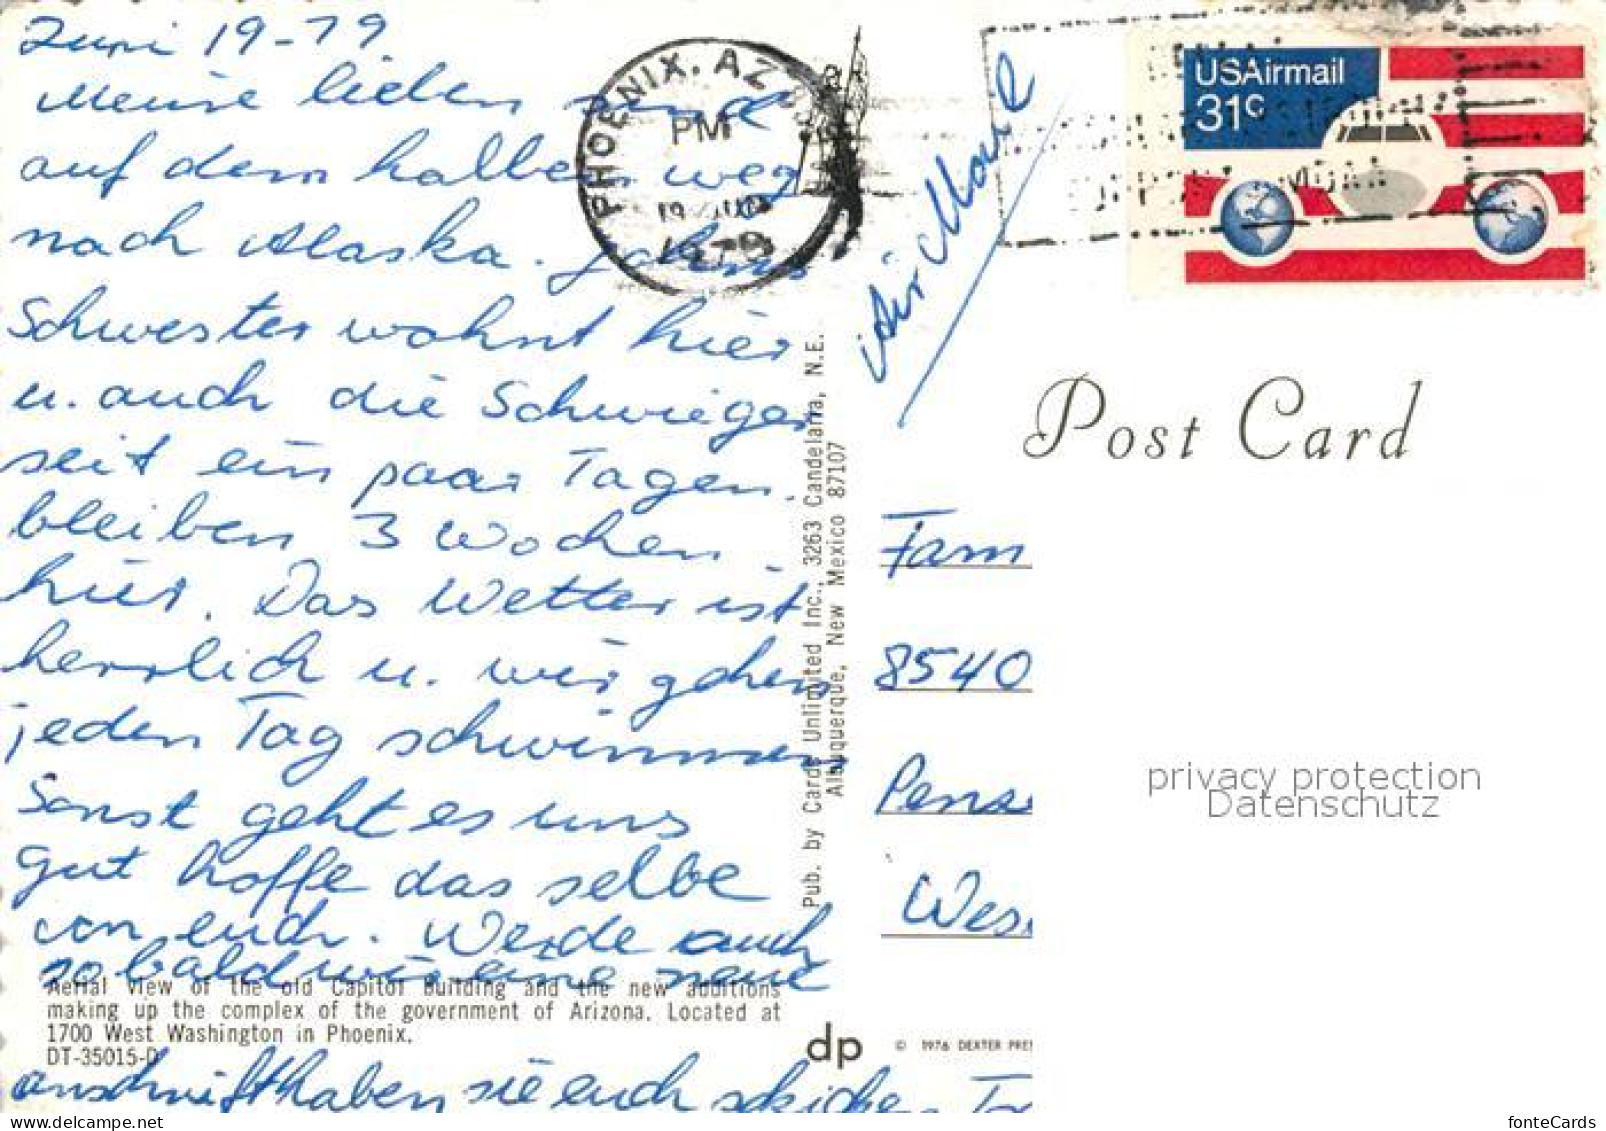 Juni 19-79
Meine lieben sind
auf dem halben weg
nach Alaska.
Schwester wohnt hier
u. auch die Schwieger
seit ein paar Tagen.
bleiben 3 Wochen
hier. Das Wetter ist
herrlich u. wir gehen
jeden Tag schwimmen
Sonst geht es uns
gut hoffe das selbe
von euch. Werde auch
so bald wir eine neue
anschrift haben sie euch schicken
Aerial view of the old Capitol Building and the new additions
making up the complex of the government of Arizona. Located at
1700 West Washington in Phoenix.
DT-35015-D
PHOENIX, AZ
PM
19 JUN
1979
Pub. by Cards Unlimited Inc., 3263 Candelaria, N.E.
Albuquerque, New Mexico 87107
dp
© 1976 DEXTER PRE
USAirmail
31c
Post Card
Fam
8540
Pens
Wes
privacy protection
Datenschutz
fonteCards